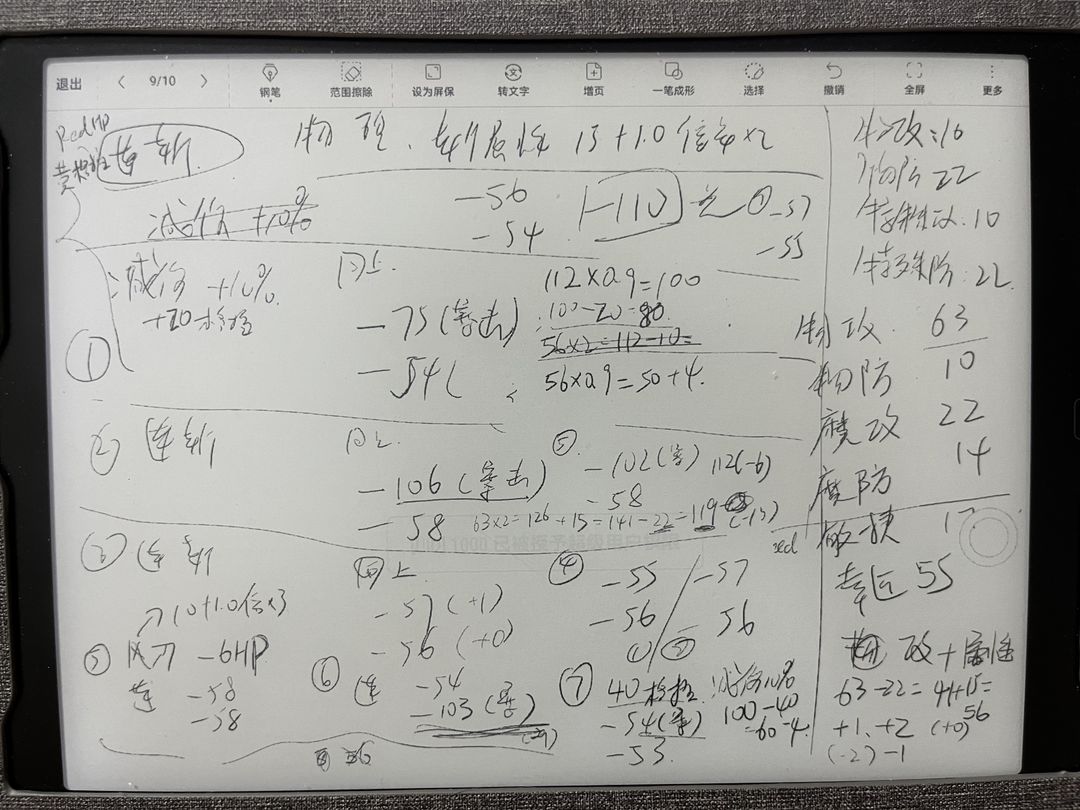 退出 9/10 钢笔 范围擦除 设为屏保 转文字 增页 一笔成形 选择 撤销 全屏 更多
Red HP
连斩
物理. 斩属性 15+1.0倍率×2
减伤 +10%
-56 -110
-54
① -57
-55
①
减伤 +10%
+20格挡
同上.
-75(暴击)
-54(
112×0.9=100
100-20=80
56×2=112-10=
56×0.9=50+4.
② 连斩
同上.
-106(暴击)
-58
⑤
-102(暴) 112(-6)
-58
63×2=126+15=141-22=119
③ 连斩
同上
↗10+1.0倍×3
-57(+1)
-56(+0)
④
-55 / -57
-56 / 56
① / ②
⑤ 风刃 -6HP
连 -58
-58
⑥ 连
-54
-103(暴)
⑦ 40格挡 减伤10%
-54(暴) 100-40
=60-4.
-53.
物攻:10
物防 22
特殊攻.10
特殊防.22.
物攻. 63
物防 10
魔攻 22
魔防 14
敏捷 17
幸运 55
攻+属性
63-22=41+15=
56
+1.+2 (+0)
(-2)-1